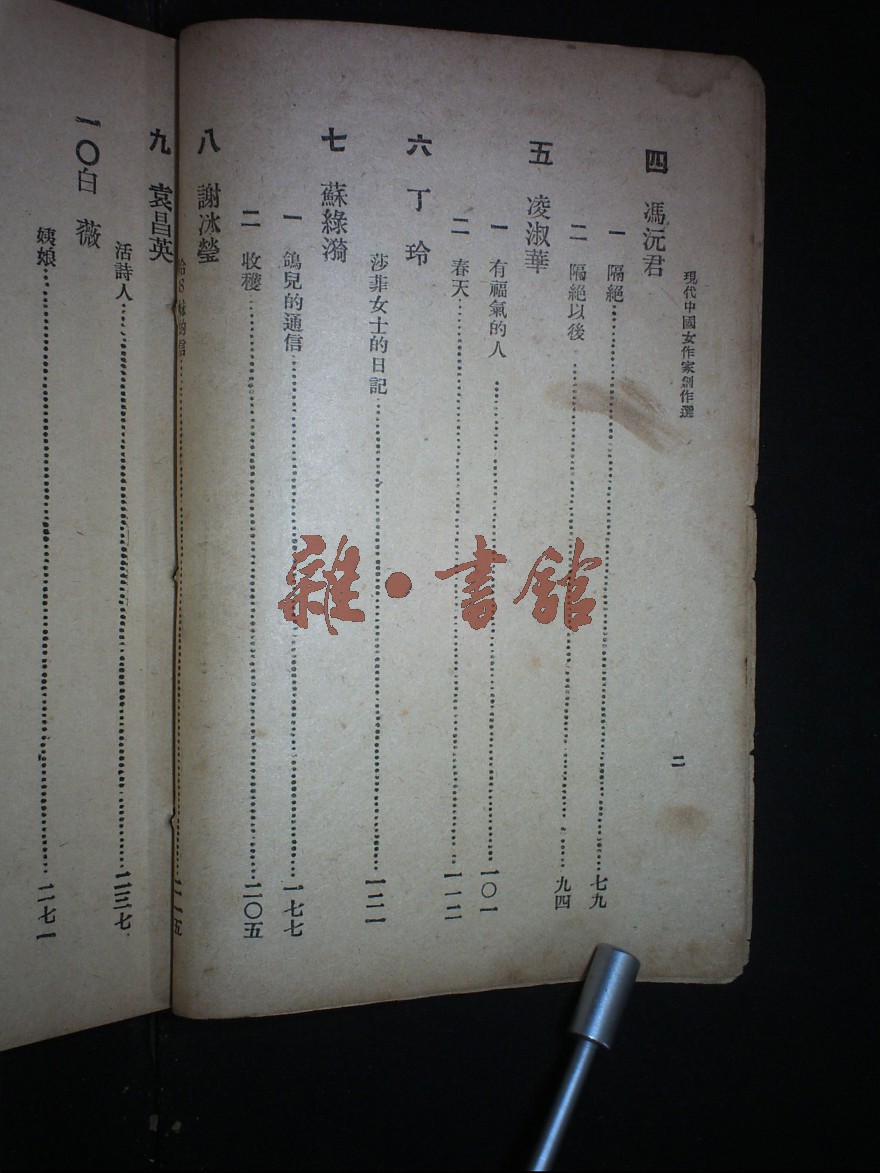 現代中國女作家創作選
二
四 馮沅君
一 隔絕……七九
二 隔絕以後……九四
五 凌淑華
一 有福氣的人……一〇一
二 春天……一一二
六 丁玲
莎菲女士的日記……一二一
七 蘇綠漪
一 鴿兒的通信……一七七
二 收穫……二〇五
八 謝冰瑩
的信……二一五
九 袁昌英
活詩人……二三七
一〇 白薇
姨娘……二七一
雜·書館